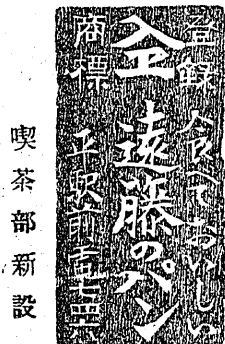 登録
商標
食べておいしい
遠藤のパン
平駅前
喫茶部新設